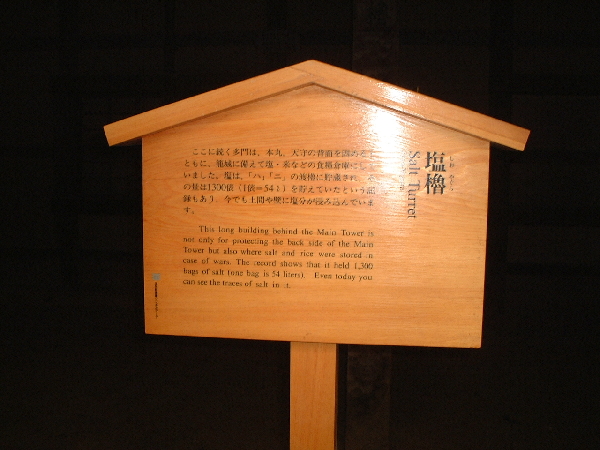 塩櫓
しお やぐら
Salt Turret
ここに続く多門は、本丸、天守の背面を固めると
ともに、籠城に備えて塩・米などの食糧倉庫にして
いました。塩は、「ハ」「ニ」の渡櫓に貯蔵され、その
の量は1300俵(1俵=54ℓ)を貯えていたという記
録もあり、今でも土間や壁に塩分が浸み込んでいま
す。
This long building behind the Main Tower is
not only for protecting the back side of the Main
Tower but also where salt and rice were stored in
case of wars. The record shows that it held 1,300
bags of salt (one bag is 54 liters). Even today you
can see the traces of salt in it.